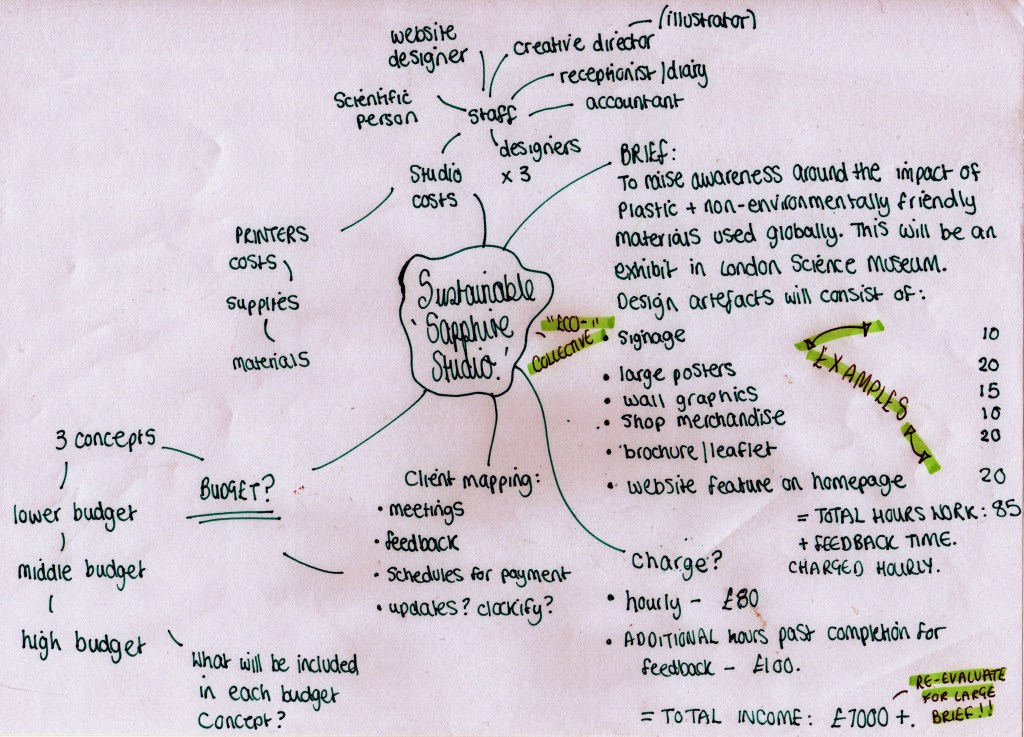 website
designer
creative director
(illustrator)
receptionist/diary
accountant
Scientific
person
Staff
designers
x 3
Studio
costs
PRINTERS
costs
supplies
materials
BRIEF:
To raise awareness around the impact of
Plastic + non-environmentally friendly
materials used globally. This will be an
exhibit in London Science Museum.
Design artefacts will consist of:
• Signage 10
• large posters 20
• wall graphics 15
• Shop merchandise 10
• brochure/leaflet 20
• website feature on homepage 20
EXAMPLES
= TOTAL HOURS WORK: 85
+ FEEDBACK TIME.
CHARGED HOURLY.
Sustainable
'Sapphire
Studio.'
"ECO-"
COLLECTIVE
3 concepts
BUDGET?
lower budget
middle budget
high budget
What will be included
in each budget
Concept?
Client mapping:
• meetings
• feedback
• Schedules for payment
• updates? clockify?
Charge?
• hourly - £80
• ADDITIONAL hours past completion for
feedback - £100.
= TOTAL INCOME: £7000 +.
RE-EVALUATE
FOR LARGE
BRIEF!!